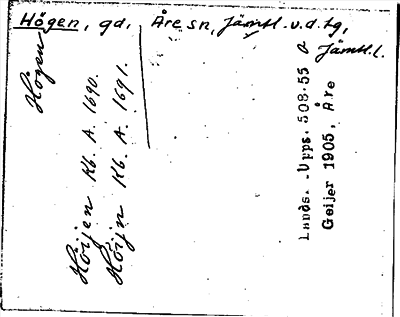 Högen, gd, Åre sn, Jämtl. v. d. tg,
Jämtl. l.
Högen
Höijen Kb. A. 1690.
Höijn Kb. A. 1691.
Lands. Upps. 508:55
Geijer 1905, Åre